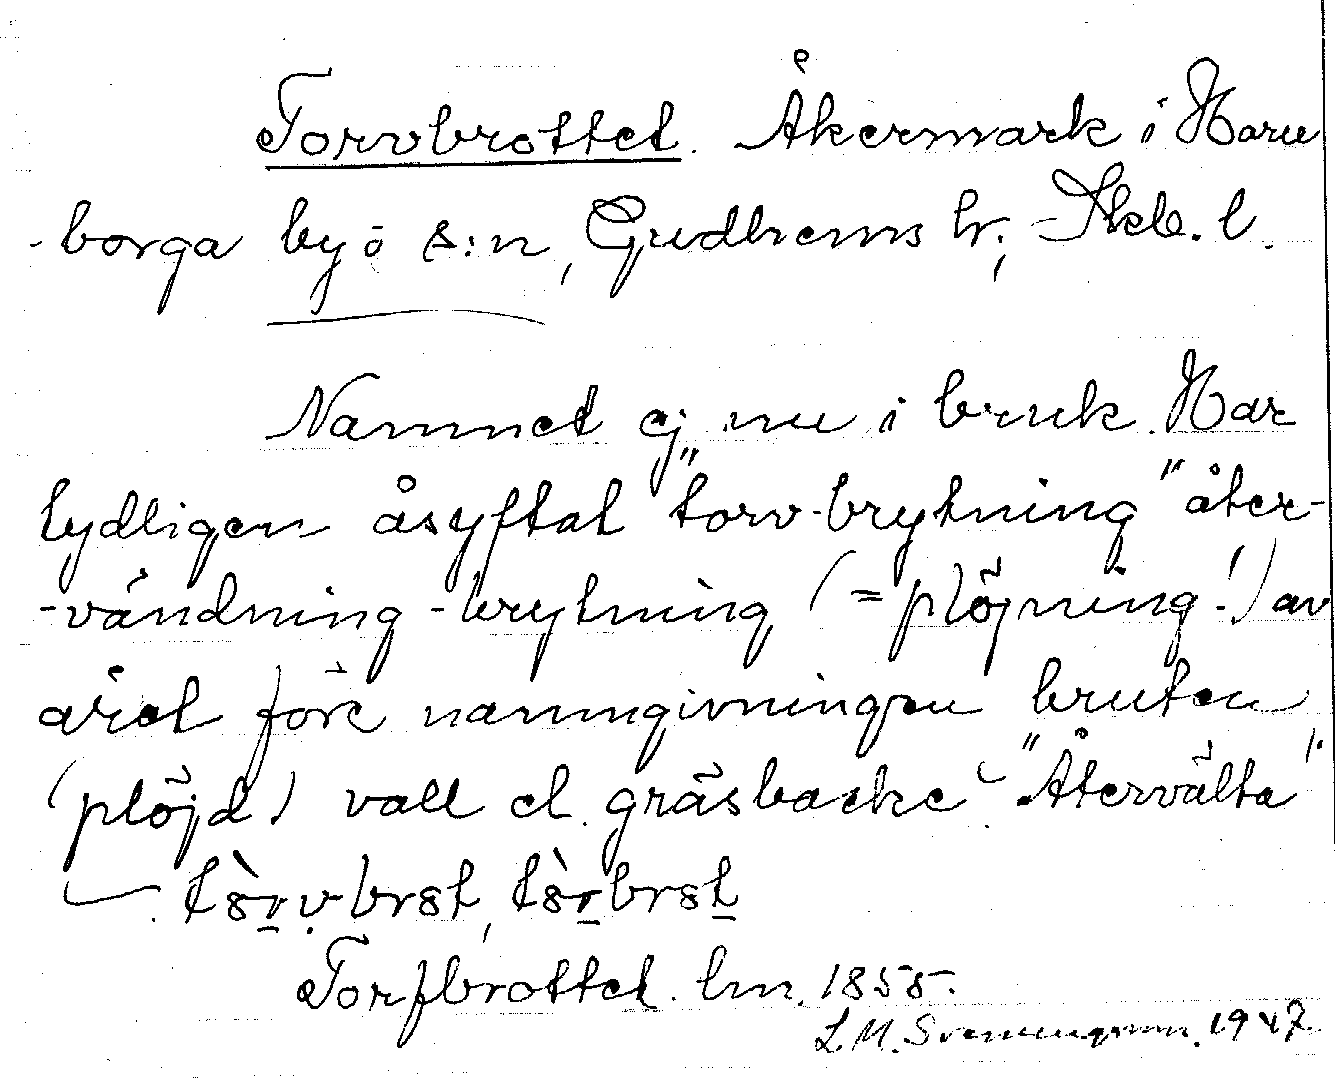 Torvbrottet. Åkermark i Haru
-borga by ö s:n, Gudhems hr; Skb. l.
Namnet ej nu i bruk. Har
tydligen åsyftat "torv-brytning" åter-
-vändning -brytning (= plöjning!) av
året före namngivningen bruten
(plöjd) vall el. gräsbacke - "Återvälta".
tòrvbrot, tòrbrot
Torfbrottet. lm. 1855.
L.M. Svenungsson. 1947